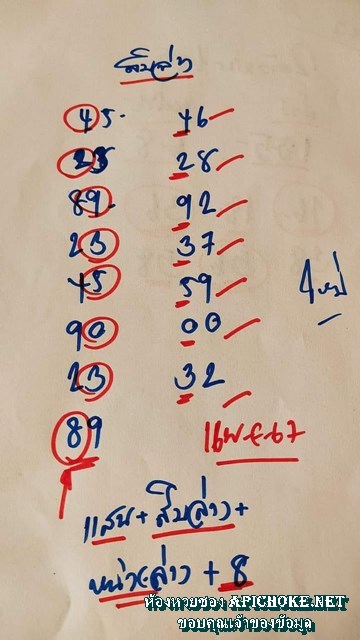 สิบล่าง
45 46
23 28
89 92
23 37
45 59
90 00
23 32
89
16 พ.ย. 67
แสน + สิบล่าง +
หน่วยล่าง + 8
ห้องหวยซอง APICHOKE.NET
ขอบคุณเจ้าของข้อมูล